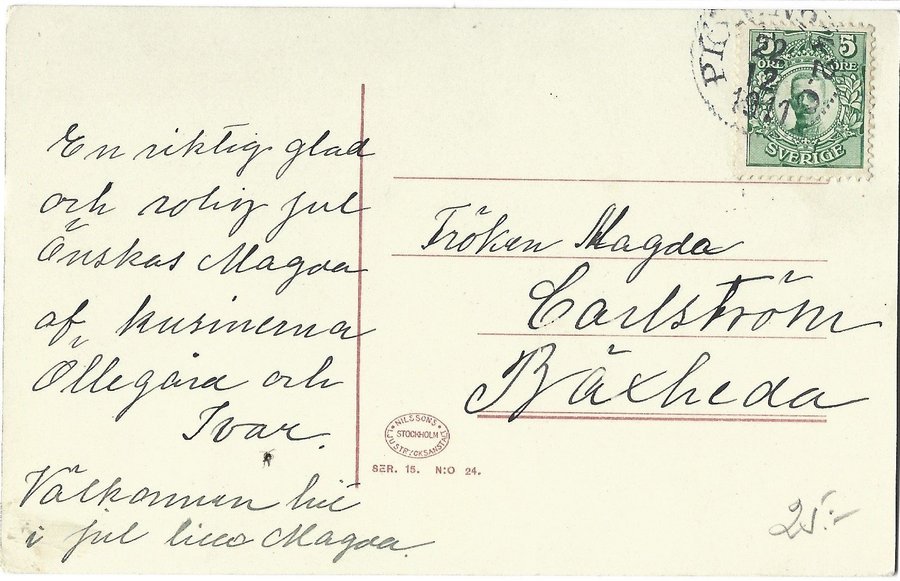 En riktig glad
och rolig jul
Önskas Magda
af kusinerna
Ollegård och
Ivar.
Välkommen hit
i jul lilla Magda.
5 5
ÖRE ÖRE
SVERIGE
22
12
1911
Fröken Magda
Carlström
Bäxheda
NILSSONS
STOCKHOLM
LJUSTRYCKSANSTALT
SER. 15. N:O 24.
25:-